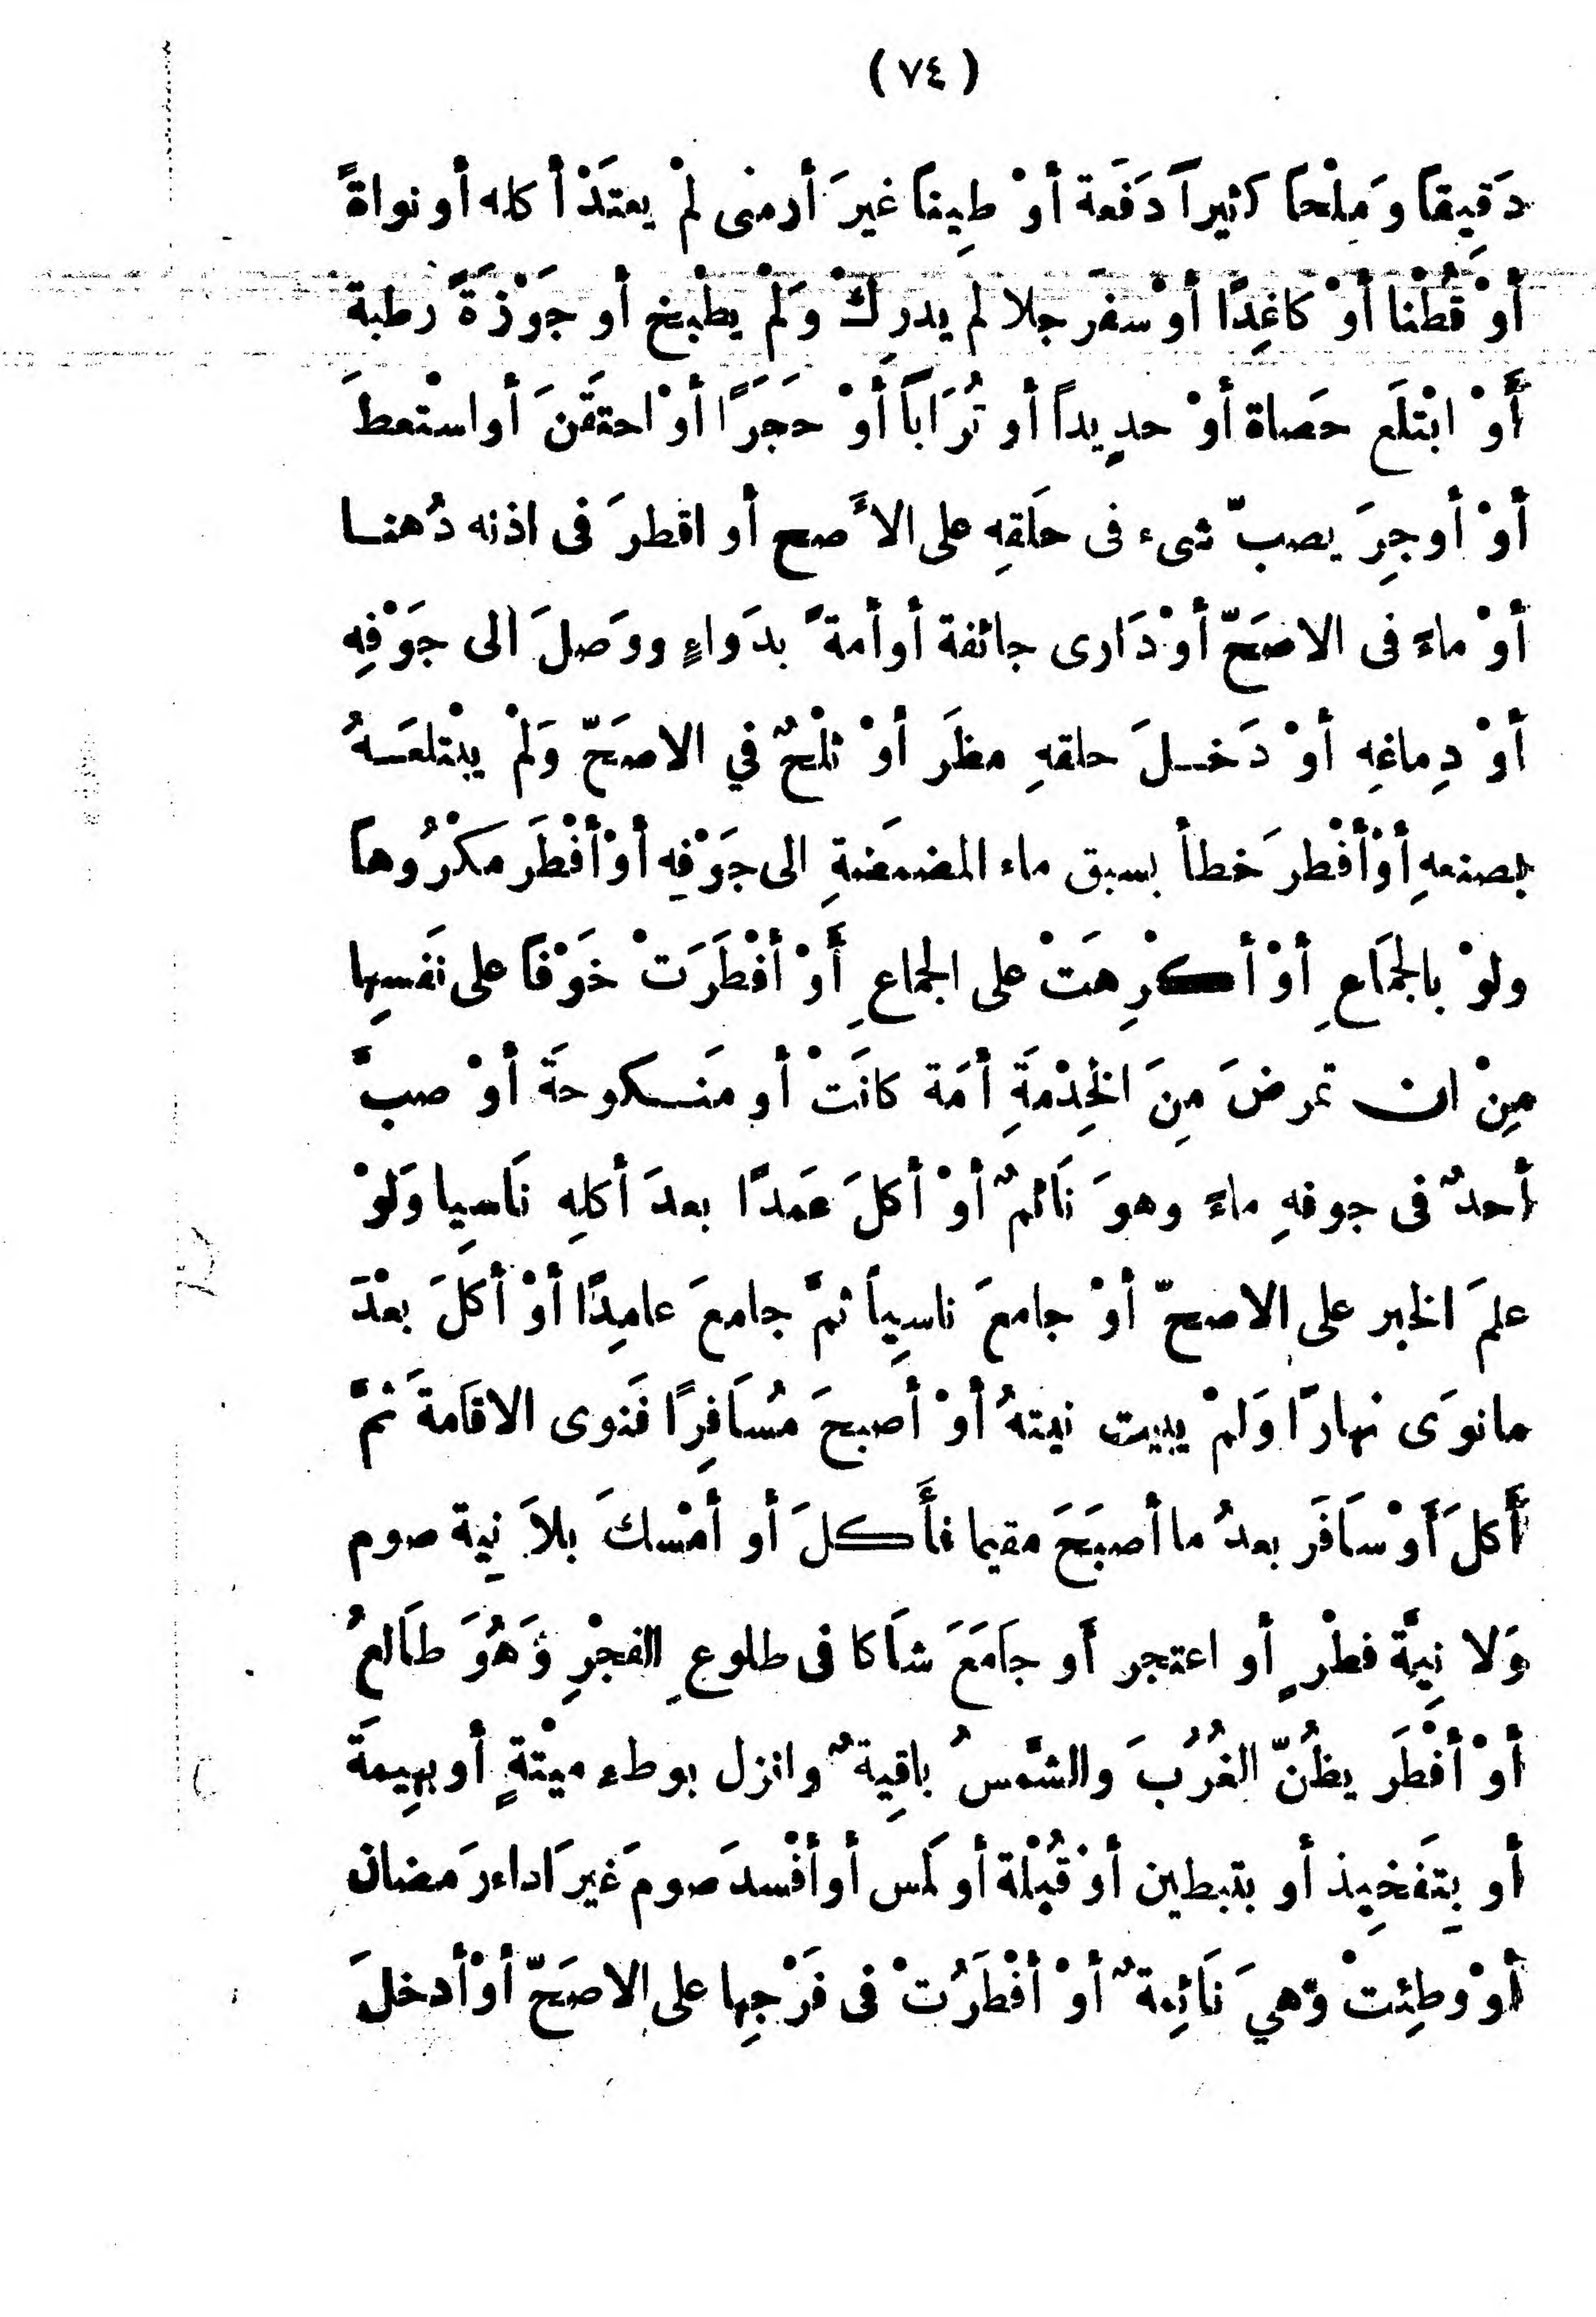 ( ٧٤ )
دَقِيقًا وَمِلْحًا كثيراً دَفَعة أوْ طِيناً غيرَ أرمنى لمْ يعتَدْ أكله أو نواةً
أوْ قُطْنا أوْ كاغِدًا أوْ سفَرجلا لم يدرِكْ وَلَمْ يطْبخ أو جَوْزَةً رطبة
أَوْ ابْتلَع حَصاة أوْ حدٍيداً أو تُرَاباً أوْ حَجَرًا أوْ احتقَنَ أو اسْتعطَ
أوْ أوجِرَ يصبّ شىء فى حلَقهِ على الأَصح أو اقطرَ فى اذنه دُهنا
أوْ ماءً فى الاصَحّ أوْ دَارى جائفة أو أمةً بدَواءٍ ووَصلَ الى جَوْفِهِ
أوْ دِماغِهِ أوْ دَخلَ حلقهِ مطَر أوْ ثلْجٌ في الاصَحّ وَلَمْ يبْتلعَهُ
بصنعهِ أوْ أفْطرَ خطأ بسبق ماء المضمَضةِ الى جَوْفِهِ أوْ أفْطَر مكْرُوهاً
ولوْ بالجمَاعِ أوْ أكْرِهَتْ على الجماعِ أَوْ أفْطَرَتْ خَوْفًا على نَفسِها
مِنْ ان تمرضَ مِنَ الخِدْمَةِ أمَة كانَتْ أو مَنكوحَة أوْ صبَّ
أحدٌ فى جوفهِ ماءً وهوَ نَائمٌ أوْ أكلَ عَمدًا بعدَ أكلِهِ نَاسِيا وَلَوْ
علمَ الخبر على الاصحّ أوْ جامعَ ناسِياً ثمَّ جامعَ عامِدًا أوْ أكَلَ بعْدَ
مانوَى نهارًا وَلمْ يبيت نيتهُ أوْ أصبحَ مُسَافِرًا فَنوى الاقَامةَ ثمَّ
أَكلَ أَوْ سَافَر بعدُ ما أصبَحَ مقيما فأَكلَ أو أمْسكَ بلاَ نِية صوم
وَلا نِيَّة فطْرٍ أو اعتجر أَو جَامَعَ شاَكا فى طلوعِ الفجْرِ وَهُوَ طَالعُ
أوْ أفْطَر يظُنّ الغُرُبَ والشَّمسُ باقِيةٌ وانزل بوطء ميْتةٍ أو بهِيمَة
أو بِتَفخِيذ أو بتبطين أوْ قُبْلة أو لَمس أو أفْسدَ صومَ غيرَ اداء رَمضان
أوْ وطِئتْ وَهيَ نَائِمةٌ أوْ أفْطَرُتْ فى فَرْجِها على الاصَحّ أوْ أدخلَ